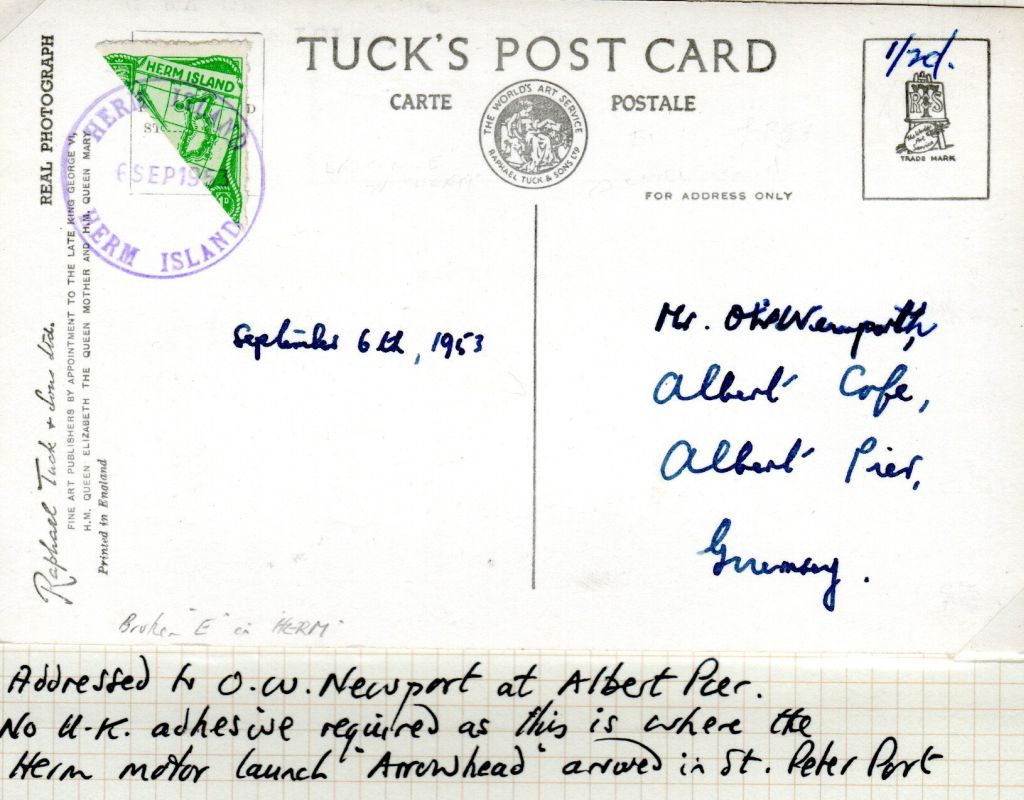 TUCK'S POST CARD
CARTE POSTALE
THE WORLD'S ART SERVICE
RAPHAEL TUCK & SONS LTD
FOR ADDRESS ONLY
1/2d.
TRADE MARK
HERM ISLAND
HERM ISLAND
6 SEP 195
HERM ISLAND
REAL PHOTOGRAPH
Raphael Tuck & Sons Ltd.
FINE ART PUBLISHERS BY APPOINTMENT TO THE LATE KING GEORGE VI,
H.M. QUEEN ELIZABETH THE QUEEN MOTHER AND H.M. QUEEN MARY
Printed in England
September 6th, 1953
Mr.
Albert Cafe,
Albert Pier,
Guernsey.
Broken "E" in "HERM"
Addressed to O.W. Newport at Albert Pier.
No U-K. adhesive required as this is where the
Herm motor launch "Arrowhead" arrived in St. Peter Port